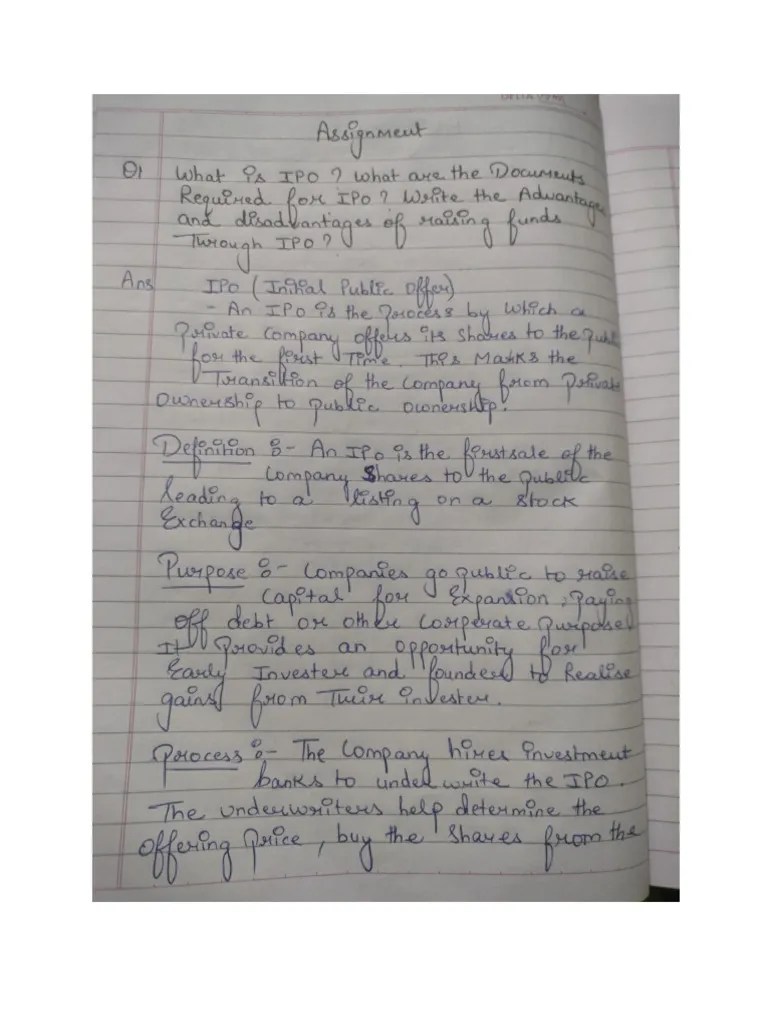 Assignment
Q1 What is IPO? What are the Documents
Required for IPO? Write the Advantages
and disadvantages of raising funds
Through IPO?
Ans IPO (Initial Public Offer)
- An IPO is the process by which a
Private Company offers its shares to the publ
for the first Time. This Marks the
Transition of the Company from Private
Ownership to public ownership.
Definition :- An IPO is the first sale of the
Company Shares to the public
leading to a listing on a stock
Exchange
Purpose :- Companies go public to raise
Capital for Expansion, Paying
off debt or other Corporate Purpose.
It Provides an opportunity for
Early Invester and founders to Realise
gains from Their invester.
Process :- The Company hires investment
banks to underwrite the IPO.
The underwriters help determine the
offering Price, buy the shares from the